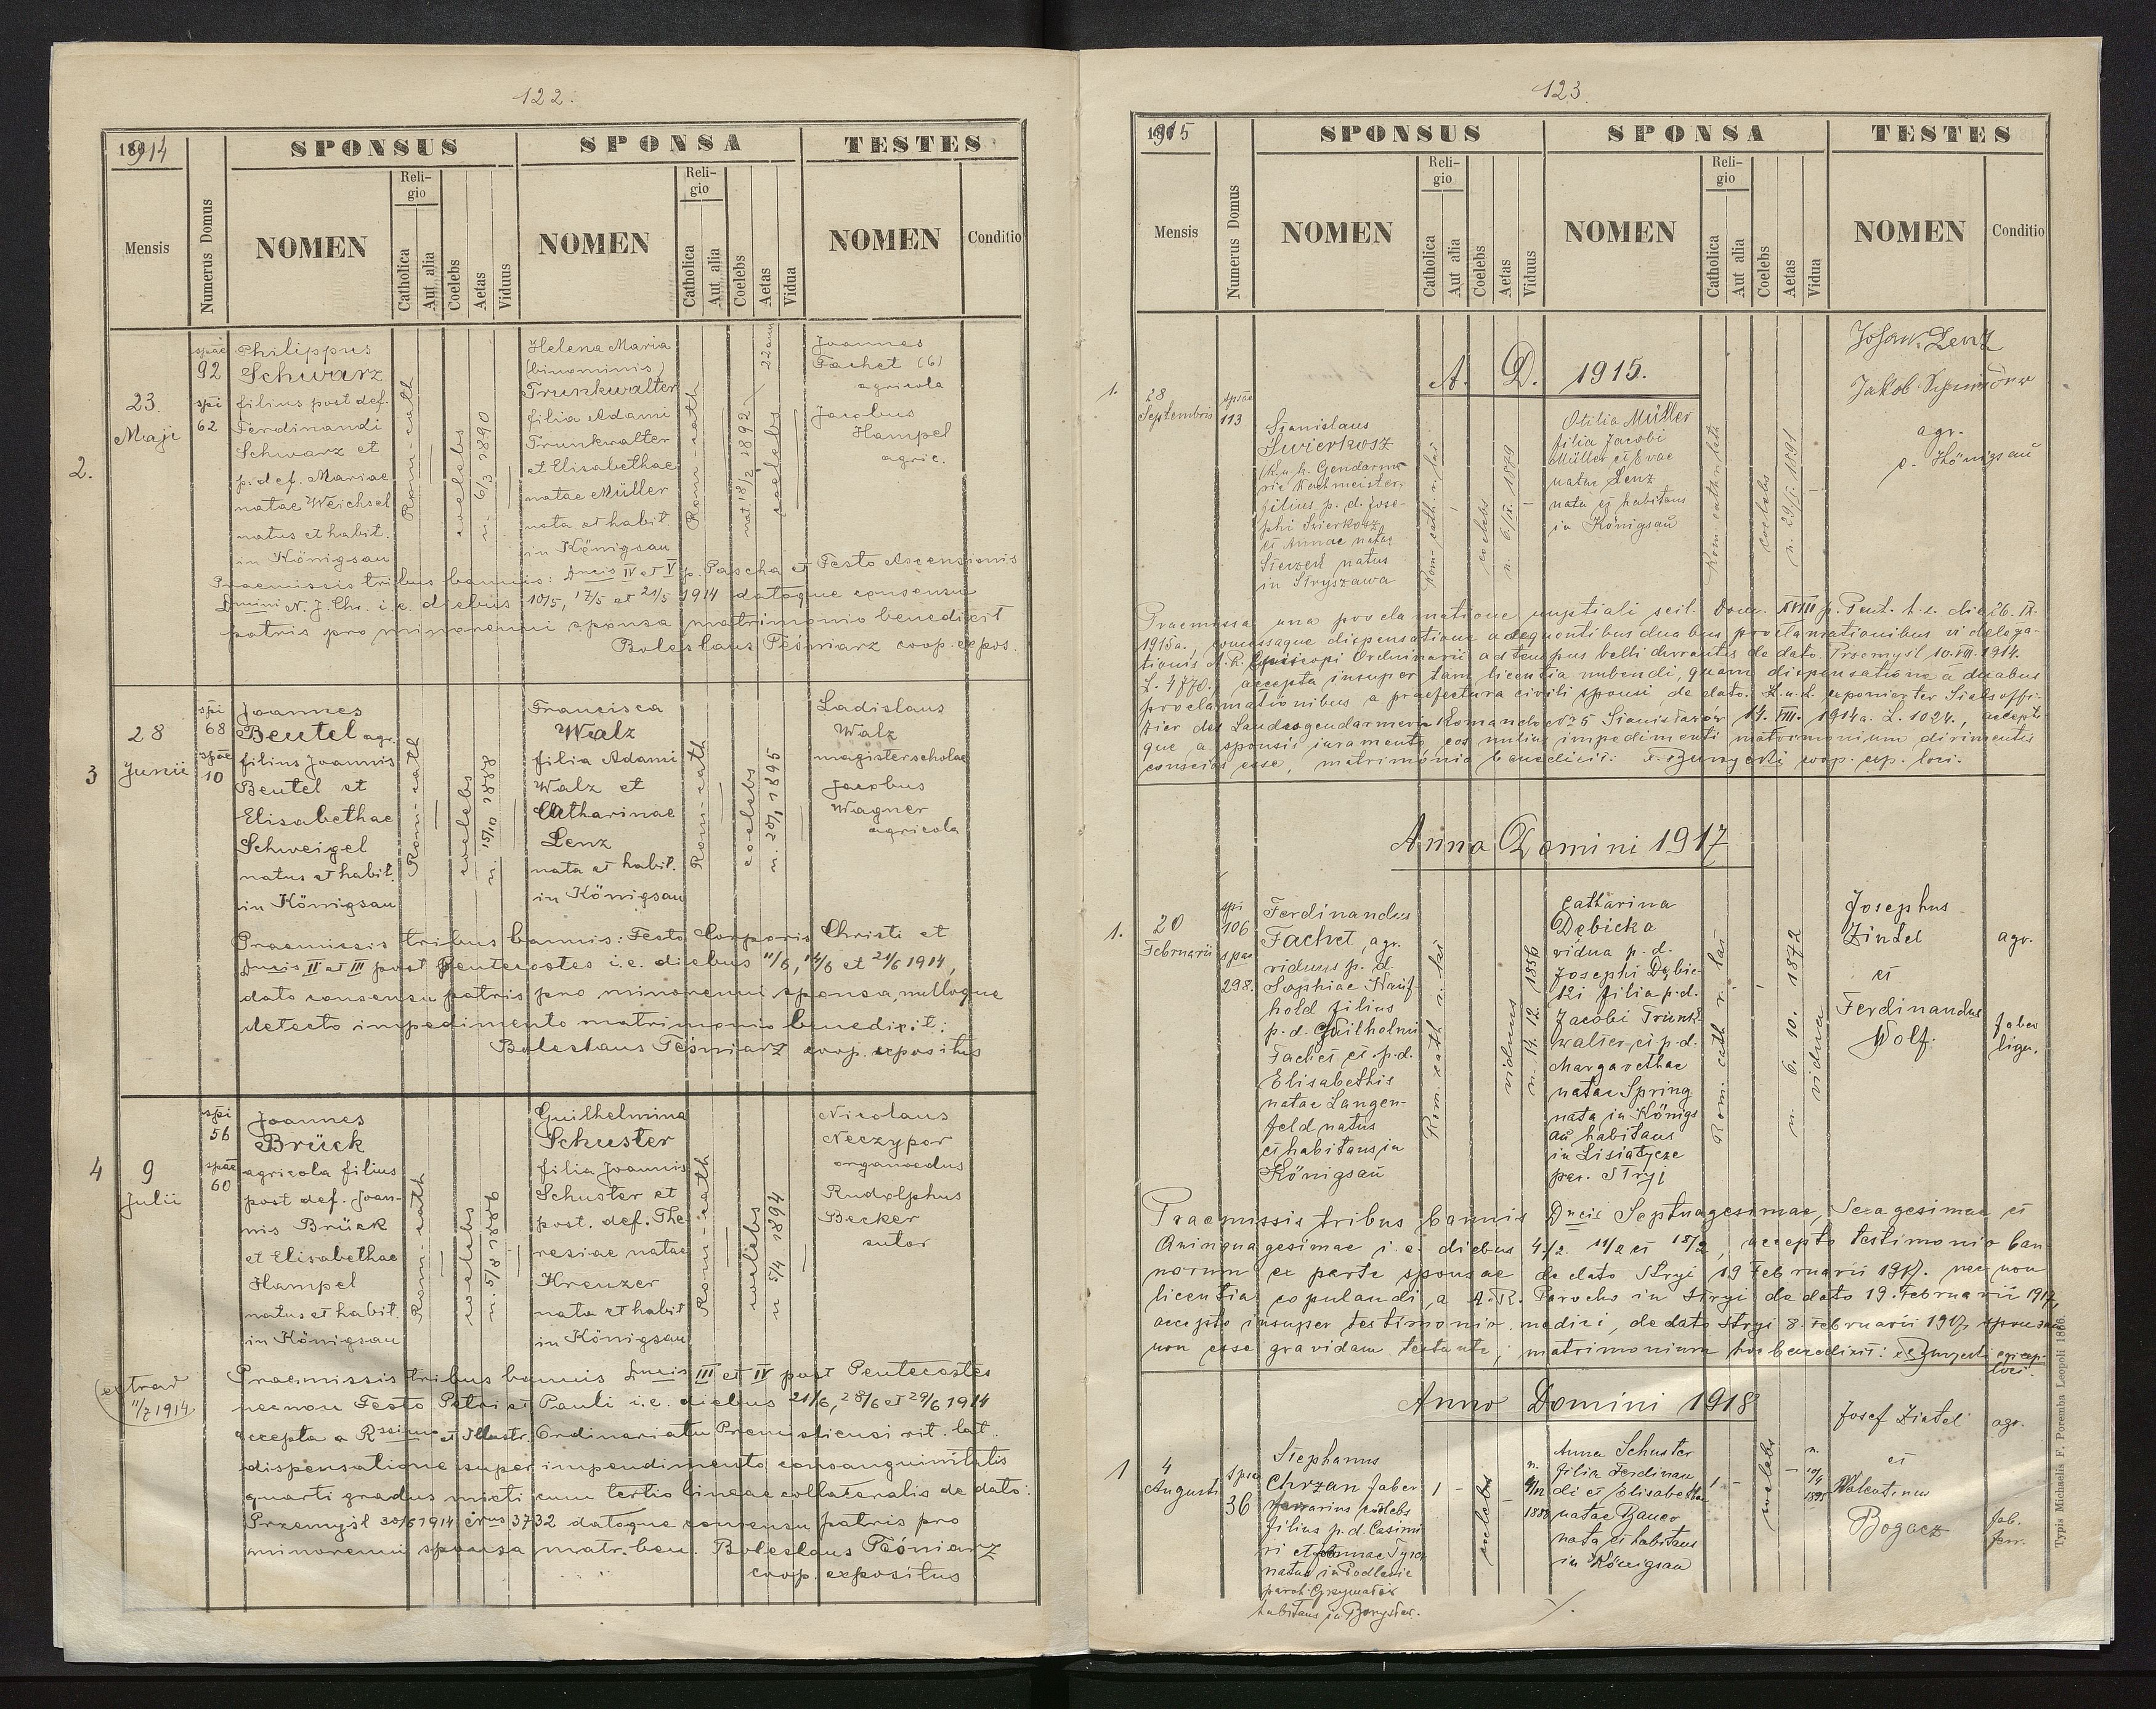 122.
1914
SPONSUS
SPONSA
TESTES
Mensis
Numerus Domus
NOMEN
Religio
Catholica
Aut alia
Coelebs
Aetas
Viduus
NOMEN
Religio
Catholica
Aut alia
Coelebs
Aetas
Vidua
NOMEN
Conditio
2.
23.
Maji
spae
92
spi
62
Philippus
Schwarz
filius post def.
Ferdinandi
Schwarz et
p. def. Mariae
natae Weichsel
natus et habit.
in Königsau
Rom-cath
coelebs
n. 6/3 1890
Helena Maria
(binominis)
Trunkwalter
filia Adami
Trunkwalter
et Elisabethae
natae Müller
nata et habit.
in Königsau
Rom-cath
nat. 18/2 1892
22 ann
coelebs
Joannes
Fachet (6)
agricola
Jacobus
Hampel
agric.
Praemissis tribus bannis: Dncis IV et V p. Pascha et Festo Ascensionis
Dmini N. J. Chr. i.e. diebus 10/5, 17/5 et 21/5 1914 datoque consensu
patris pro minorenni sponsa matrimonio benedixit
Boleslaus Teśniarz coop. expos.
3
28
Junii
spi
68
spae
10
Joannes
Beutel agr.
filius Joannis
Beutel et
Elisabethae
Schweigel
natus et habit.
in Königsau
Rom-cath
coelebs
n. 15/10 1888
Francisca
Walz
filia Adami
Walz et
Catharinae
Lenz
nata et habit.
in Königsau
Rom-cath
coelebs
n. 25/1 1895
Ladislaus
Walz
magister scholae
Jacobus
Wagner
agricola
Praemissis tribus bannis: Festo Corporis Christi et
Dncis II et III post Pentecostes i.e. diebus 11/6, 14/6 et 21/6 1914,
dato consensu patris pro minorenni sponsa, nulloque
detecto impedimento matrimonio benedixit:
Boleslaus Teśniarz coop. expositus
4
9
Julii
spi
56
spae
60
Joannes
Brück
agricola filius
post def. Joan-
nis Brück
et Elisabethae
Hampel
natus et habit.
in Königsau
Rom-cath
coelebs
n. 5/8 1886
Guilhelmina
Schuster
filia Joannis
Schuster et
post. def. The
resiae natae
Kreuzer
nata et habit
in Königsau
Rom-cath
coelebs
n 5/4 1894
Nicolaus
Neczypor
organoedus
Rudolphus
Becker
sutor
extrad
11/7 1914
Praemissis tribus bannis Dncis III et IV post Pentecostes
necnon Festo Petri et Pauli i.e. diebus 21/6, 28/6 et 29/6 1914
accepta a Rssimo et Illustr. Ordinariatu Premisliensi rit. lat.
dispensatione super impendimento consanguinitatis
quarti gradus mixti cum tertio lineae collateralis de dato:
Przemyśl 30/6 1914 Nrus 3732 datoque consensu patris pro
minorenni sponsa matr. ben. Boleslaus Teśniarz
coop. expositus
123
1915
SPONSUS
SPONSA
TESTES
Mensis
Numerus Domus
NOMEN
Religio
Catholica
Aut alia
Coelebs
Aetas
Viduus
NOMEN
Religio
Catholica
Aut alia
Coelebs
Aetas
Vidua
NOMEN
Conditio
A. D. 1915.
1.
28
Septembris
spae
113
Stanislaus
Świerkosz
(k. u. k. Gendarme-
rie Wachmeister,
filius p. d. Jose-
phi Świerkosz
et Annae natae
natus
in Stryszawa
Rom-cath. r. lat
coelebs
n. 6/IX. 1879
Otilia Müller
filia Jacobi
Müller et Evae
natae Lenz
nata et habitans
in Königsau
Rom cath. r. lat
coelebs
n. 29/I. 1891
Johan. Lenz
Jakob
agr.
e. Königsau
Praemissa una proclamatione nuptiali scil. Dom. XVIII p. Pent. h. e. die 26. IX.
1915 a., concessaque dispensatione a sequentibus duabus proclamationibus vi delega-
tionis A. R. Episcopi Ordinarii ad tempus belli durantis de dato. Przemyśl 10. VIII. 1914.
L. 4770. accepta insuper tam licentia nubendi, quam dispensatione a duabus
proclamationibus a praefectura civili sponsi, de dato. K. u. k. exponierter Stabsoffi-
zier des Landesgendarmerie Komando No 5 Stanisławów 14. VIII. 1914 a. L. 1024., accepto
que a sponsis iuramento, eos nullius impedimenti matrimonium dirimentis
conscios esse, matrimonio benedixit: coop. exp. loci.
Anno Domini 1917
1.
20
Februarii
spi
106
spae
298.
Ferdinandus
Fachet, agr.
viduus p. d.
Sophiae Kauf-
hold filius
p. d. Guilhelmi
Fachet et p. d.
Elisabethis
natae Langen-
feld natus
et habitans in
Königsau
Rom. cath r. lat
viduus
n. 14. 12. 1856
Catharina
Dębicka
vidua p. d.
Josephi Dębic-
ki filia p. d.
Jacobi Trunk-
walter et p. d.
Margarethae
natae Spring
nata in Königs
au habitans
in Lisiatycze
par. Stryj
Rom. cath r. lat
n. 6. 10. 1872
vidua
Josephus
Zintel
agr.
et
Ferdinandus
Wolf.
faber
lign.
Praemissis tribus bannis Dncis Septuagesimae, Sexagesimae et
Quinquagesimae i. e. diebus 4/2. 11/2 et 18/2, accepto testimonio ban-
norum ex parte sponsae de dato Stryj 19 Februarii 1917. nec non
licentia copulandi a A. R. Parocho in Stryj de dato 19. Februarii 1917,
accepto insuper testimonio medici, de dato Stryj 8. Februarii 1917, sponsam
non esse gravidam testante, matrimonium hoc benedixit:
loci.
Anno Domini 1918
1
4
Augusti
spae
36
Stephanus
Chrzan faber
ferrarius coelebs
filius p. d. Casimi
ri et Annae
natus in Podlesie
paroh.
habitans in Borysław.
1 -
coelebs
n.
1888
Anna Schuster
filia Ferdinan
di et Elisabethae
natae Bauer
nata et habitans
in Königsau
1 -
coelebs
n.
10/4
1895
Josef Zintel
agr.
et
Walentinus
Bogacz
fab.
ferr.
Typis Michaelis F. Poremba Leopoli 1886.